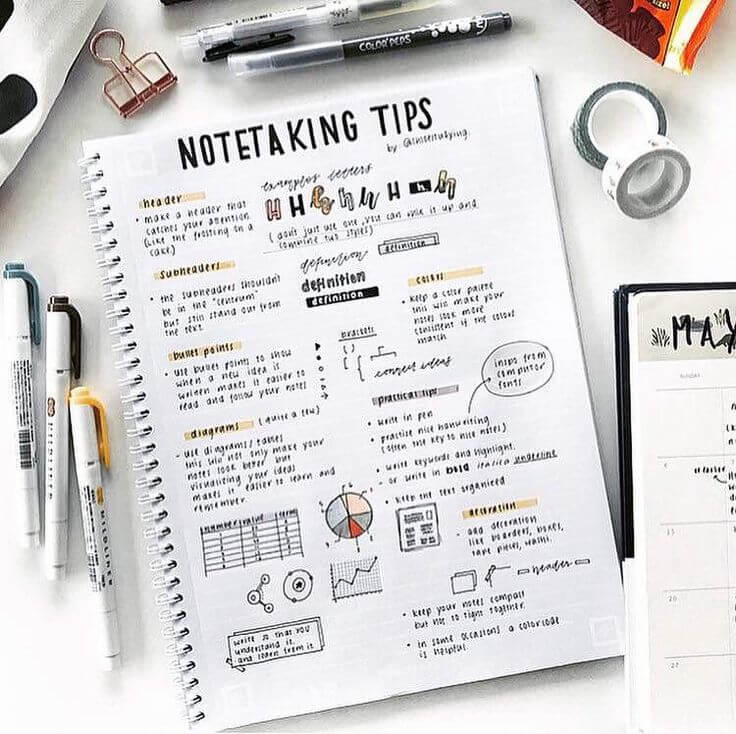 COLOR PEPS
NOTETAKING TIPS
header
• make a header that
catches your attention
(like the frosting on a
cake)
examples letters
H H h h h H h h
(don't just use one you can mix it up and
combine two styles)
subheaders
• the subheaders shouldn't
be in the "centrum"
but still stand out from
the text.
definition
definition
definition
definition
colors
• keep a color palette
this will make your
notes look more
consistent if the colors
match
bullet points
• use bullet points to show
when a new idea is
written makes it easier to
read and follow your notes
brackets
connect ideas
inspo from
computer
fonts
practical tips
• write in pen
• practise nice handwriting
(often the key to nice notes)
• write keywords and highlight.
- or write in bold italics underline
• keep the text organized
diagrams (quite a few)
• use diagrams/tables
this will not only make your
notes look better but
visualizing your ideas
makes it easier to learn and
remember.
decoration
• add decoration
like boarders, boxes,
tape pieces, washi.
header
• keep your notes compact
but not to tight together.
• in some occasions a colorcode
is helpful
write so that you
understand it
and learn from it
MAY
SUNDAY
20
27
MILDLINER